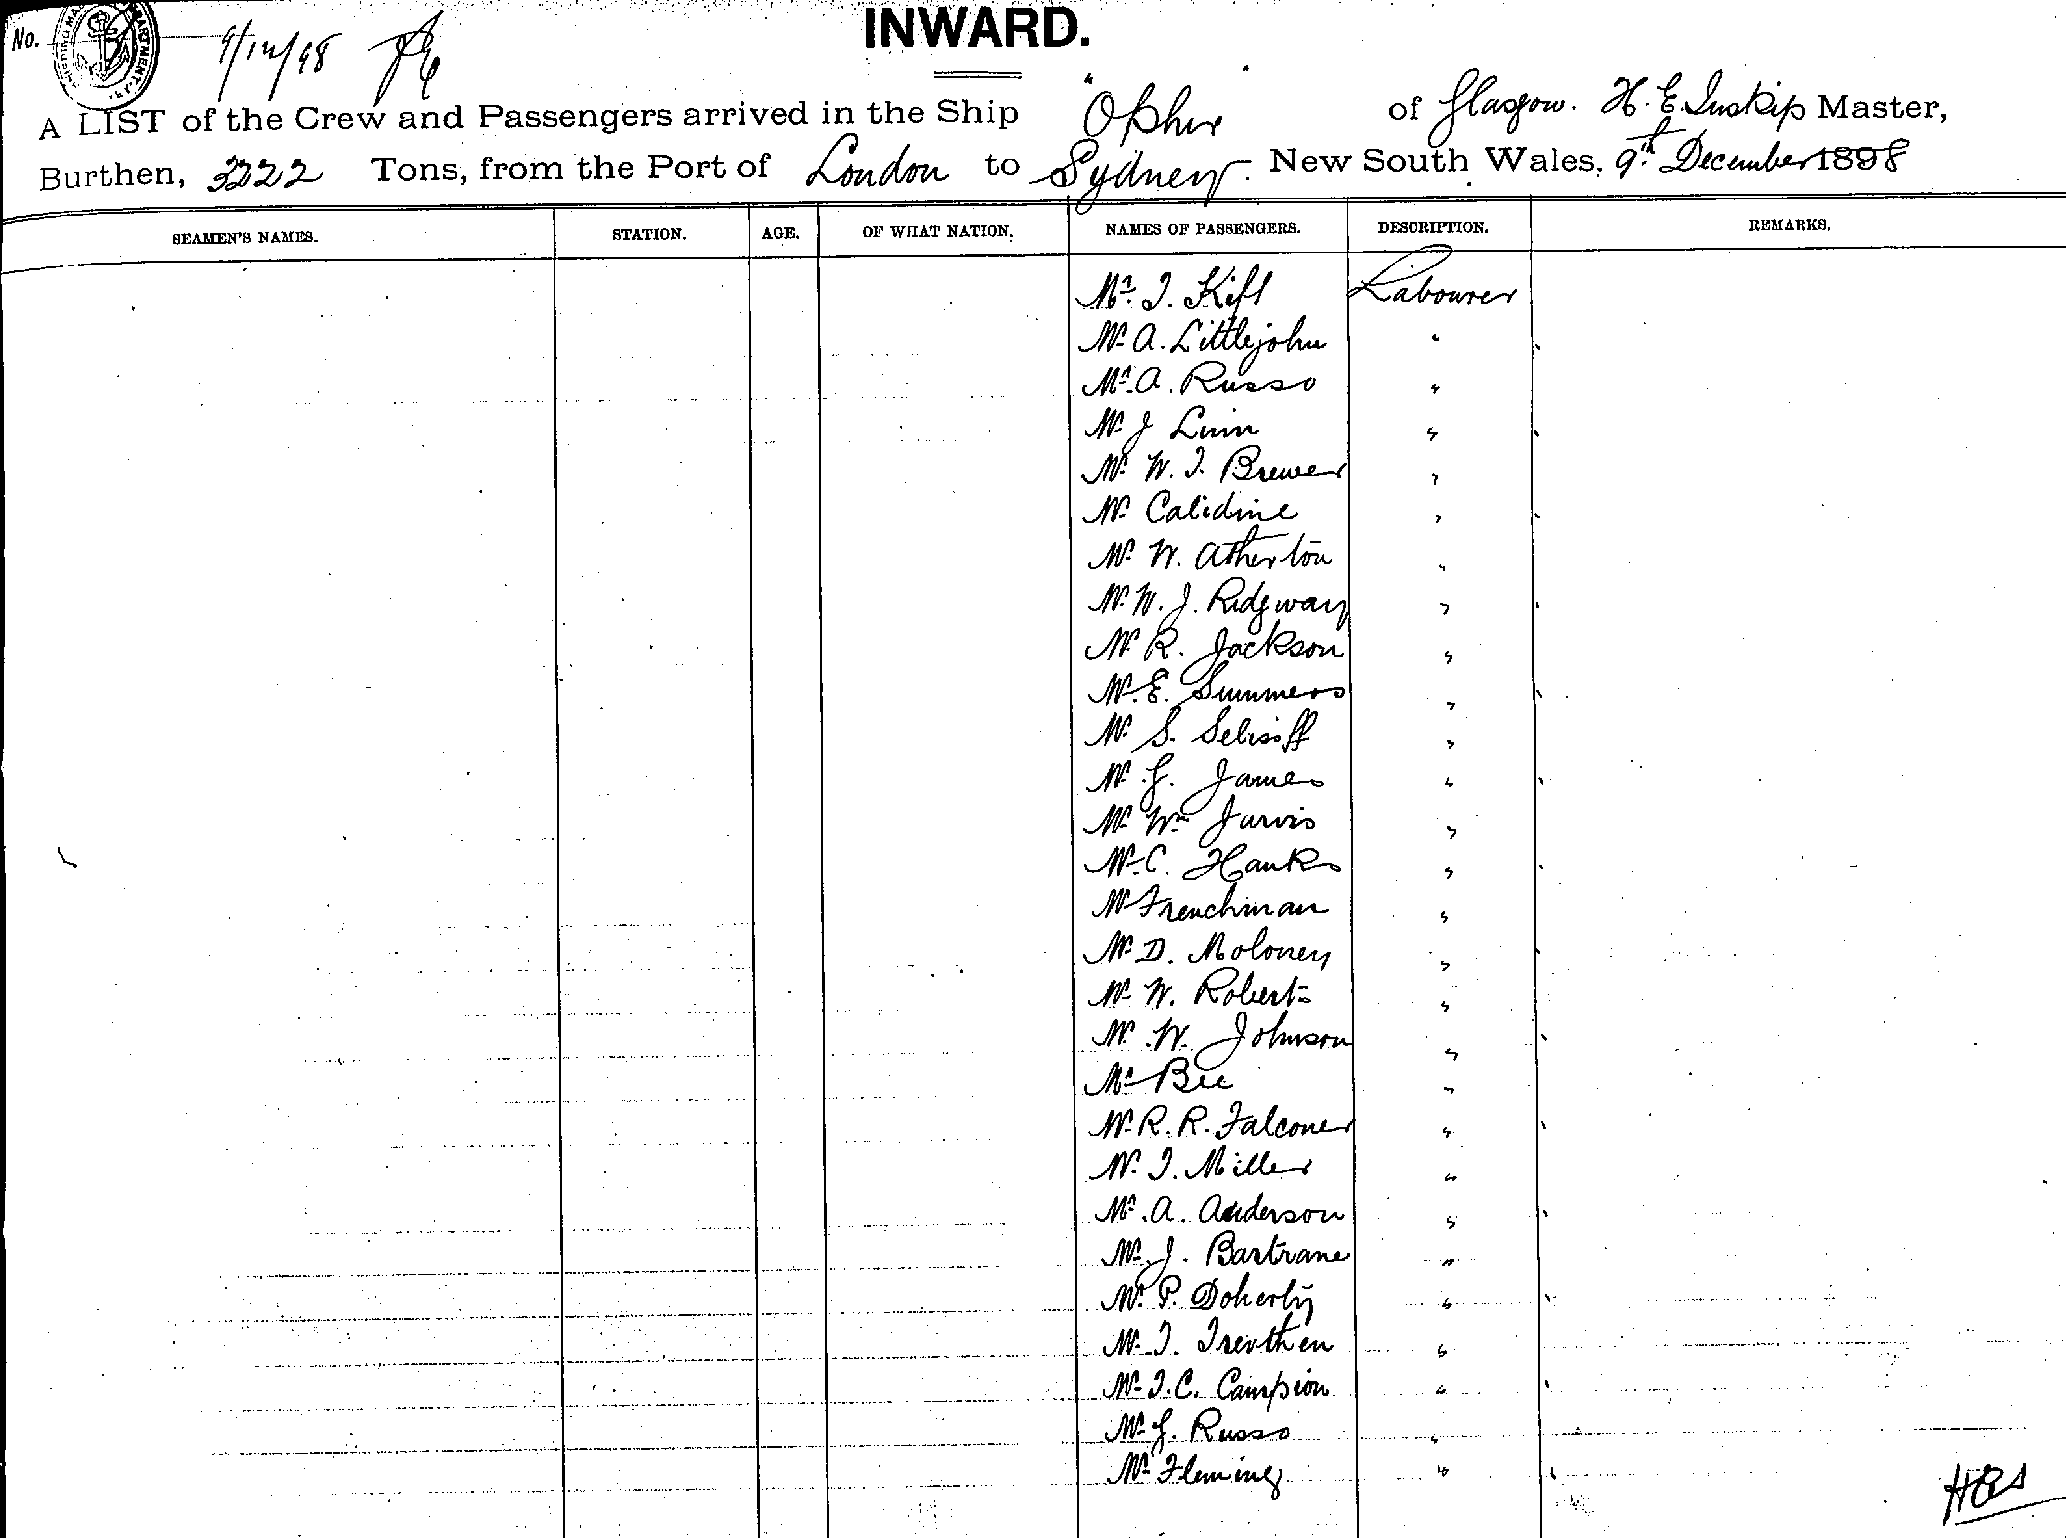 INWARD.
No. 9/12/98
A LIST of the Crew and Passengers arrived in the Ship "Ophir" of Glasgow. H. E. Inskip Master,
Burthen, 3222 Tons, from the Port of London to Sydney. New South Wales, 9th December 1898
SEAMEN'S NAMES. STATION. AGE. OF WHAT NATION. NAMES OF PASSENGERS. DESCRIPTION. REMARKS.
Mr. T. Kift Labourer
Mr A. Littlejohn "
Mr. A. Russo "
Mr J Linn "
Mr W. T. Brewer "
Mr Calidine "
Mr W. Atherton "
Mr W. J. Ridgway "
Mr R. Jackson "
Mr. E. Summers "
Mr S. Selisoff "
Mr G. James "
Mr Wm Jarvis "
Mr C. Hanks "
Mr Frenchman "
Mr D. Moloney "
Mr W. Roberts "
Mr W. Johnson "
Mr Bee "
Mr R. R. Falconer "
Mr T. Miller "
Mr. A. Anderson "
Mr J. Bartrane "
Mr P. Doherty "
Mr T. Trevthen "
Mr T. C. Campion "
Mr G. Russo "
Mr Fleming "